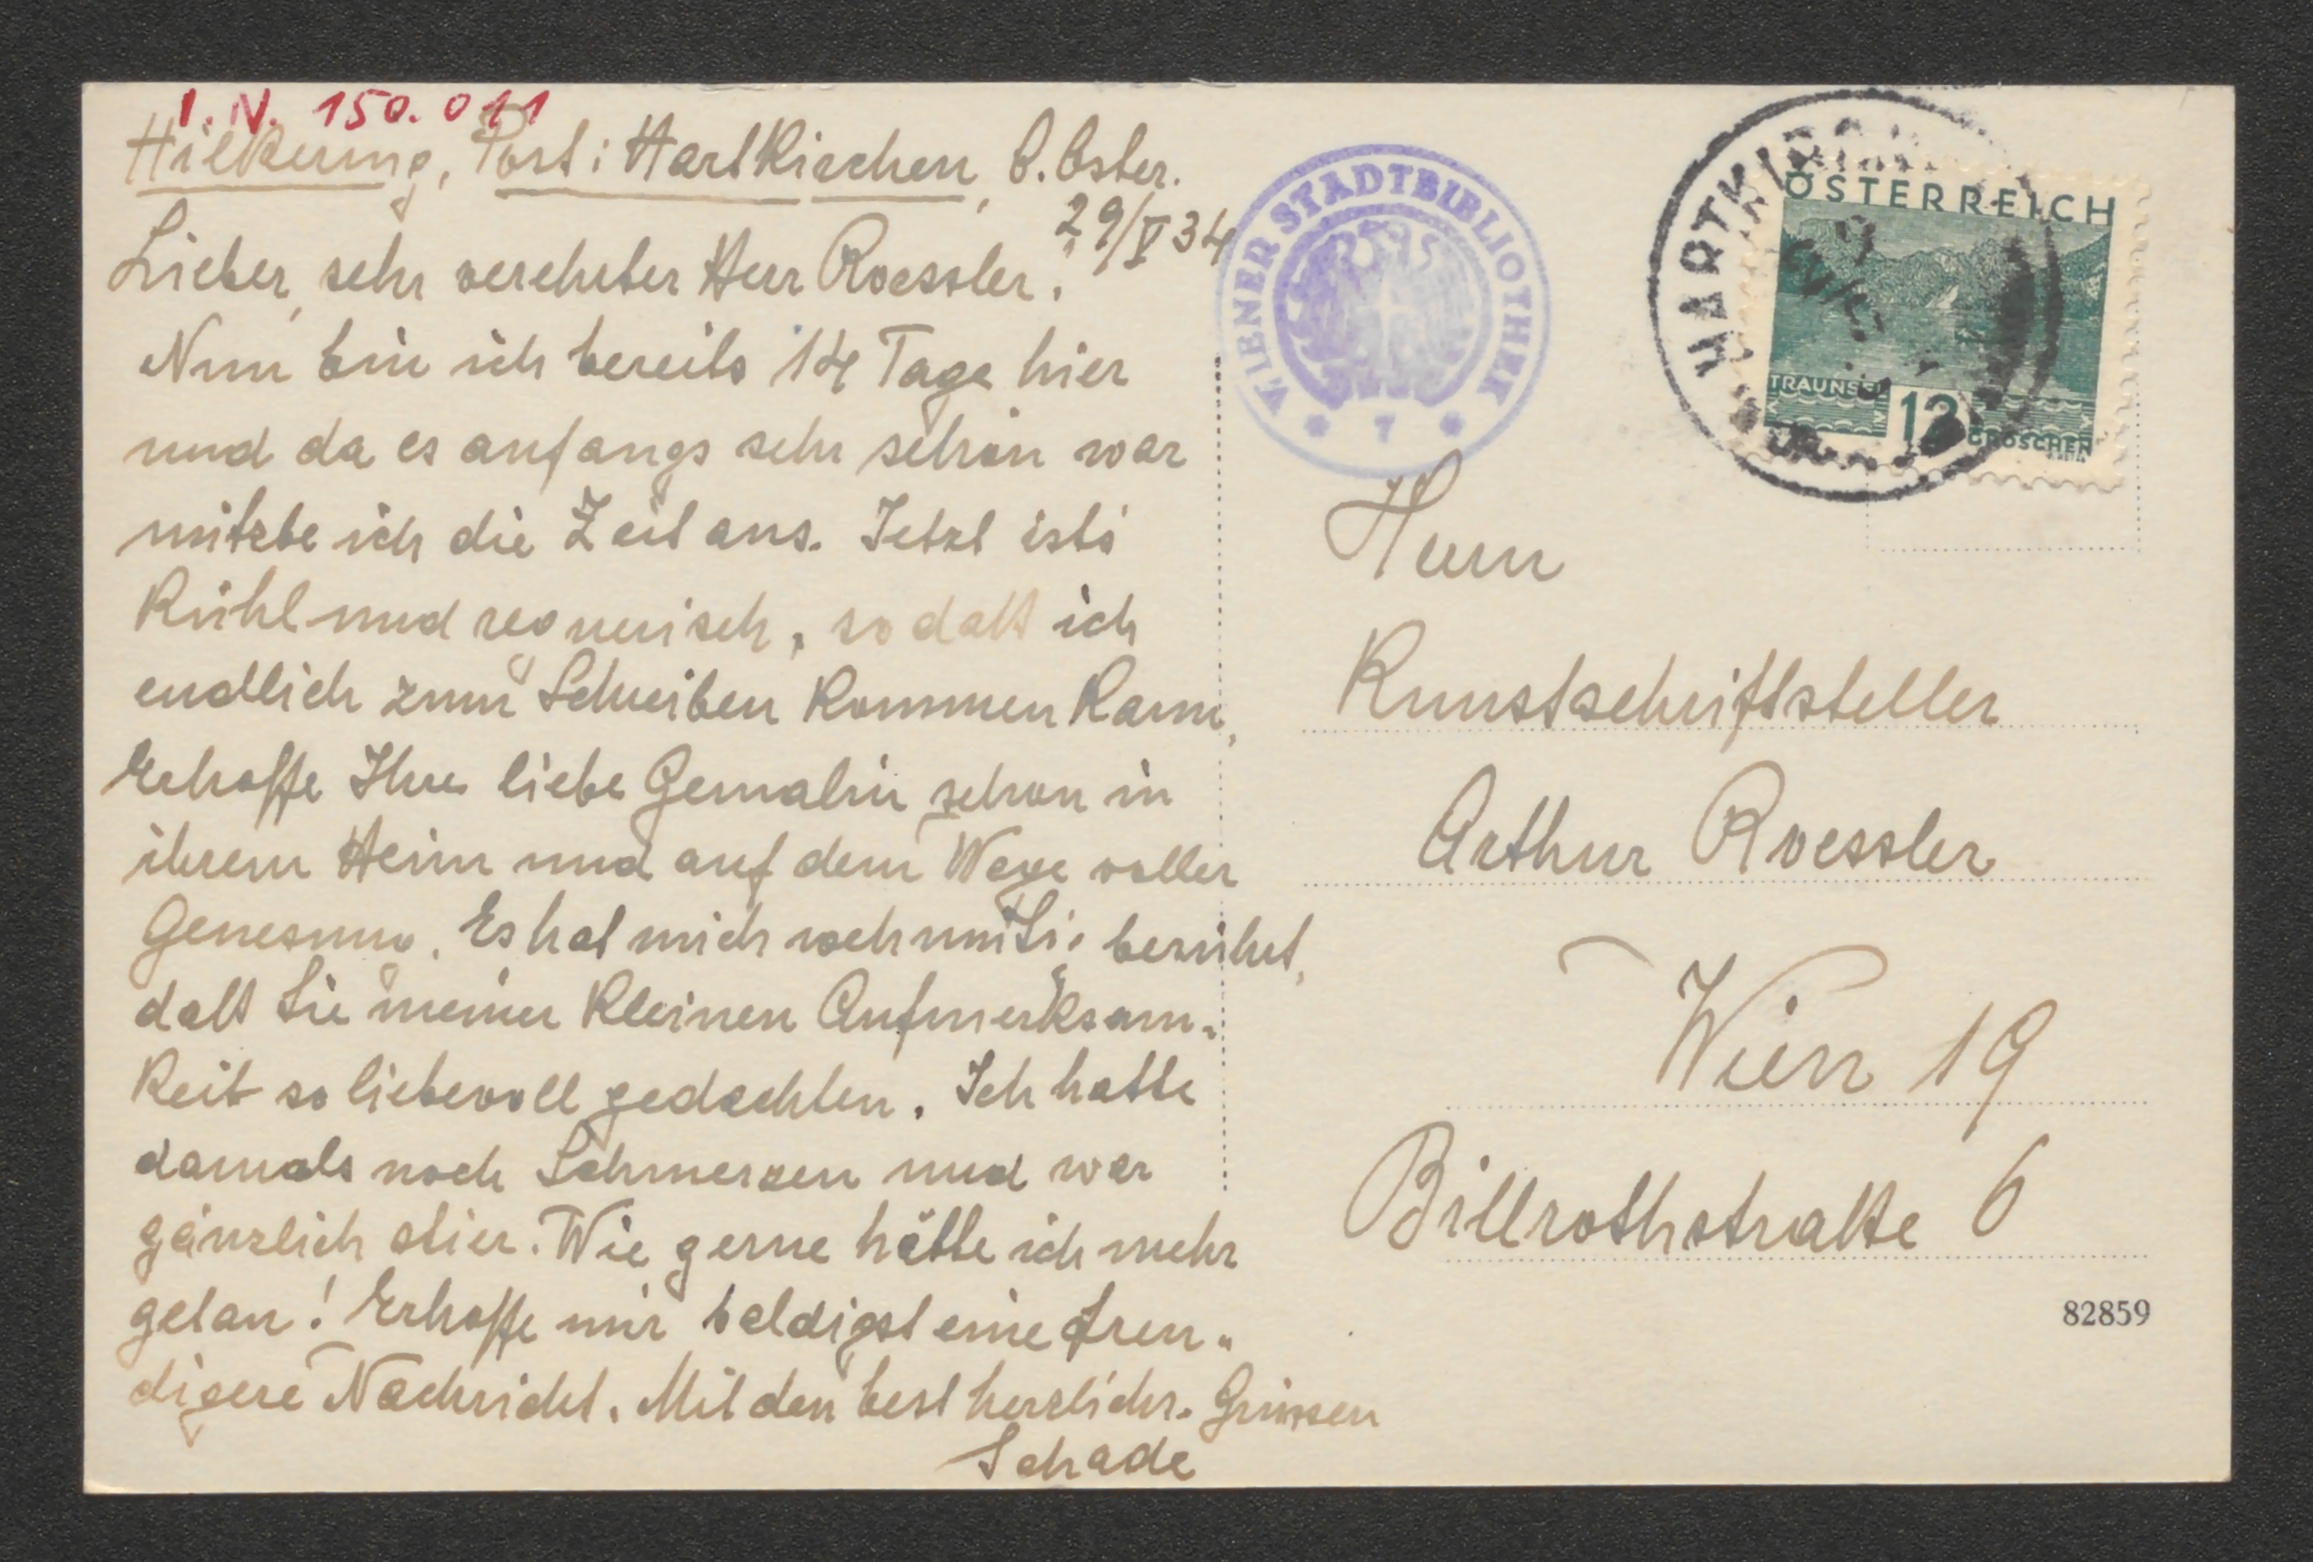 I.N. 150.011
Hilkering, Post: Hartkirchen, O.Öster.
29/V 34
Lieber, sehr verehrter Herr Roessler!
Nun bin ich bereits 14 Tage hier
und da es anfangs sehr schön war
nützte ich die Zeit aus. Jetzt ists
kühl und regnerisch, so daß ich
endlich zum Schreiben kommen kann.
Erhoffe Ihre liebe Gemalin schon in
ihrem Heim und auf dem Wege voller
Genesung. Es hat mich wehmütig berührt,
daß Sie meiner kleinen Aufmerksam-
keit so liebevoll gedachten. Ich hatte
damals noch Schmerzen und war
gänzlich stier. Wie gerne hätte ich mehr
getan! Erhoffe mir baldigst eine freu-
digere Nachricht. Mit den best herzlichs. Grüssen
Schade
WIENER STADTBIBLIOTHEK
* 7 *
HARTKIRCHEN
ÖSTERREICH
TRAUNSEE
12 GROSCHEN
Herrn
Kunstschriftsteller
Arthur Roessler
Wien 19
Billrothstraße 6
82859